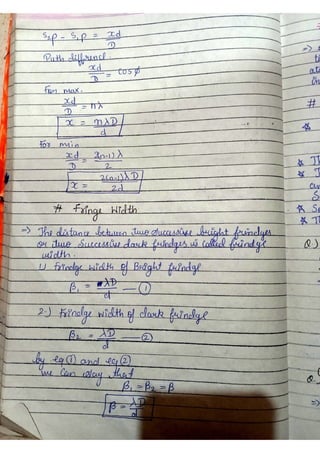 S₂P - S₁P = xd/D
Path diffrence
xd/D = cos φ
For max.
xd/D = nλ
x = nλD/d
For min
xd/D = 2(n-1)λ/2
x = 2(n-1)λD/2d
# Fringe Width
=> The distance between two successive bright frindges
or two successive dark frindges is called frindge
width.
1) Frindge width of Bright frindge
β₁ = λD/d —(1)
2-) Frindge width of dark frindge
β₂ = λD/d —(2)
by eq (1) and eq (2)
we can say that
β₁ = β₂ = β
β = λD/d